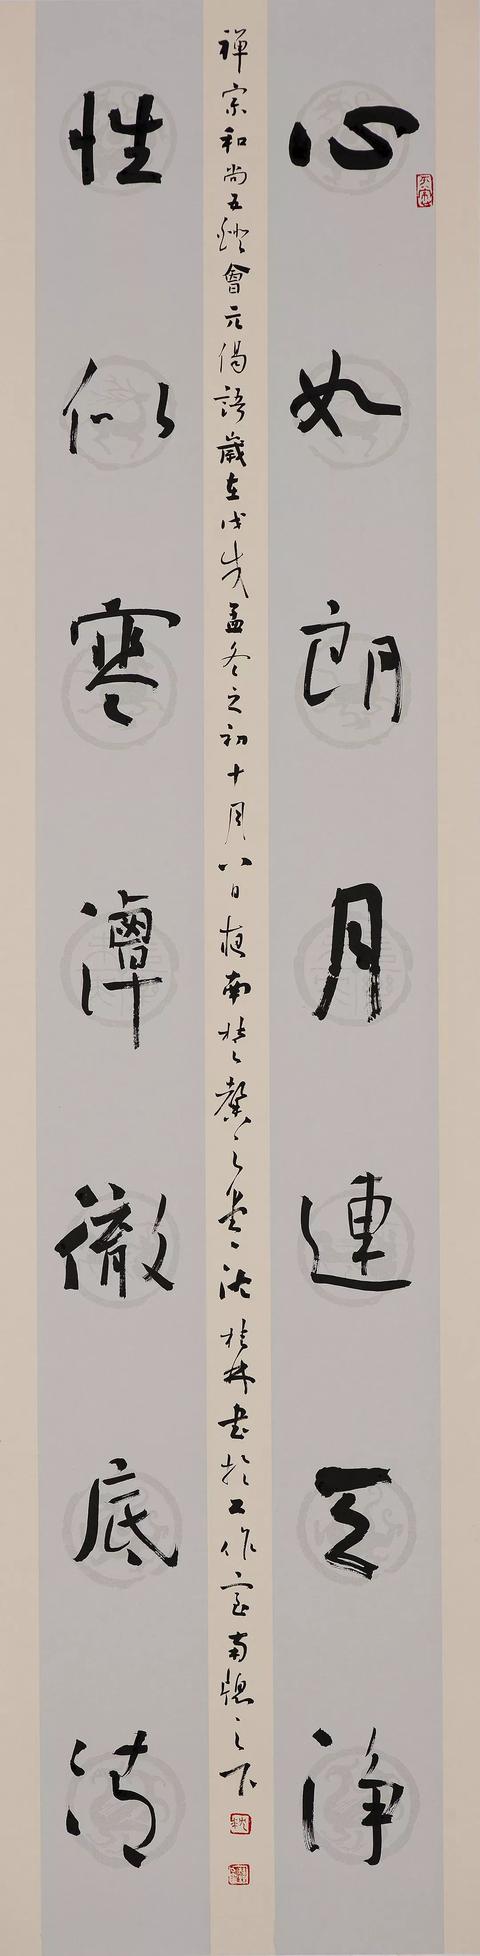 心如朗月連天淨
性似寒潭徹底清
禪宗和尚五燈會元偈語歲在戊戌孟冬之初十月八日夜南楚馨之堂沈桂林書於工作室南牕之下